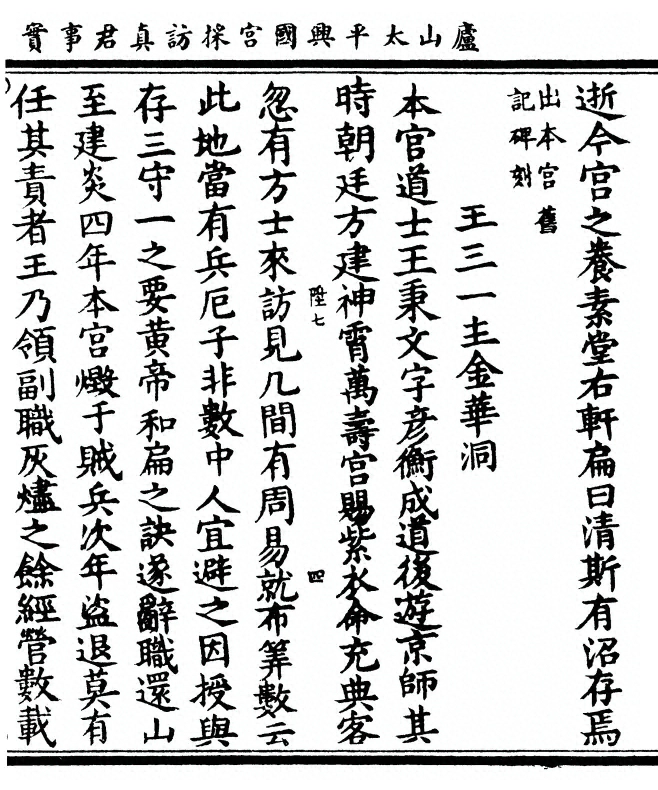 廬山太平興國宮採訪真君事實
逝今宮之養素堂右軒扁曰清斯有沼存焉
出本宮舊
記碑刻
王三一主金華洞
本宮道士王秉文字彥衡成道後遊京師其
時朝廷方建神霄萬壽宮賜紫衣命充典客
忽有方士來訪見几間有周易就布筭數云
陞七
四
此地當有兵厄子非數中人宜避之因授與
存三守一之要黃帝和扁之訣遂辭職還山
至建炎四年本宮燬于賊兵次年盜退莫有
任其責者王乃領副職灰燼之餘經營數載